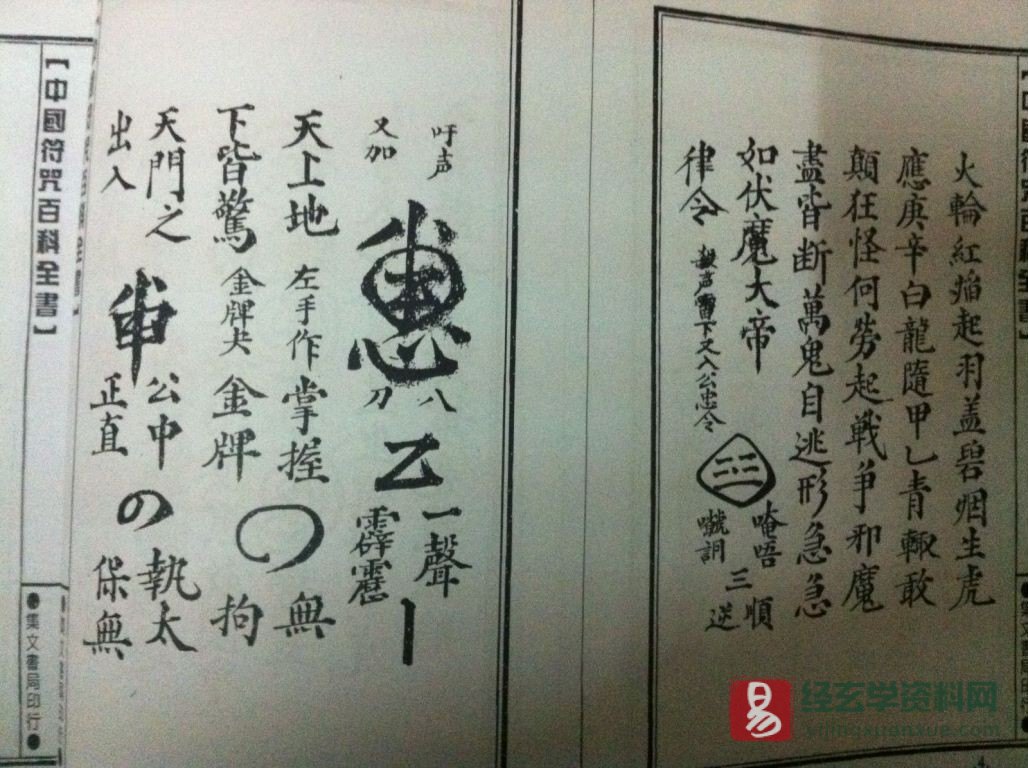 火輪紅焰起羽盖碧烟生虎
應庚辛白龍隨甲乙青輙敢
顛狂怪何勞起戰爭邪魔
盡皆断萬鬼自逃形急急
如伏魔大帝
律令
声雷下又入公忠令
唵唔
嚱詗
三
順
逆
吁声
又加
八
刀
乙
一聲
霹靂
天上地
下皆驚
左手作
金牌夬
掌握
金牌
無
拘
天門之
出入
公中
正直
の
執太
保無
【中國符咒百科全書】
●集文書局印行●
易
经玄学资料网
yijingxuanxue.com